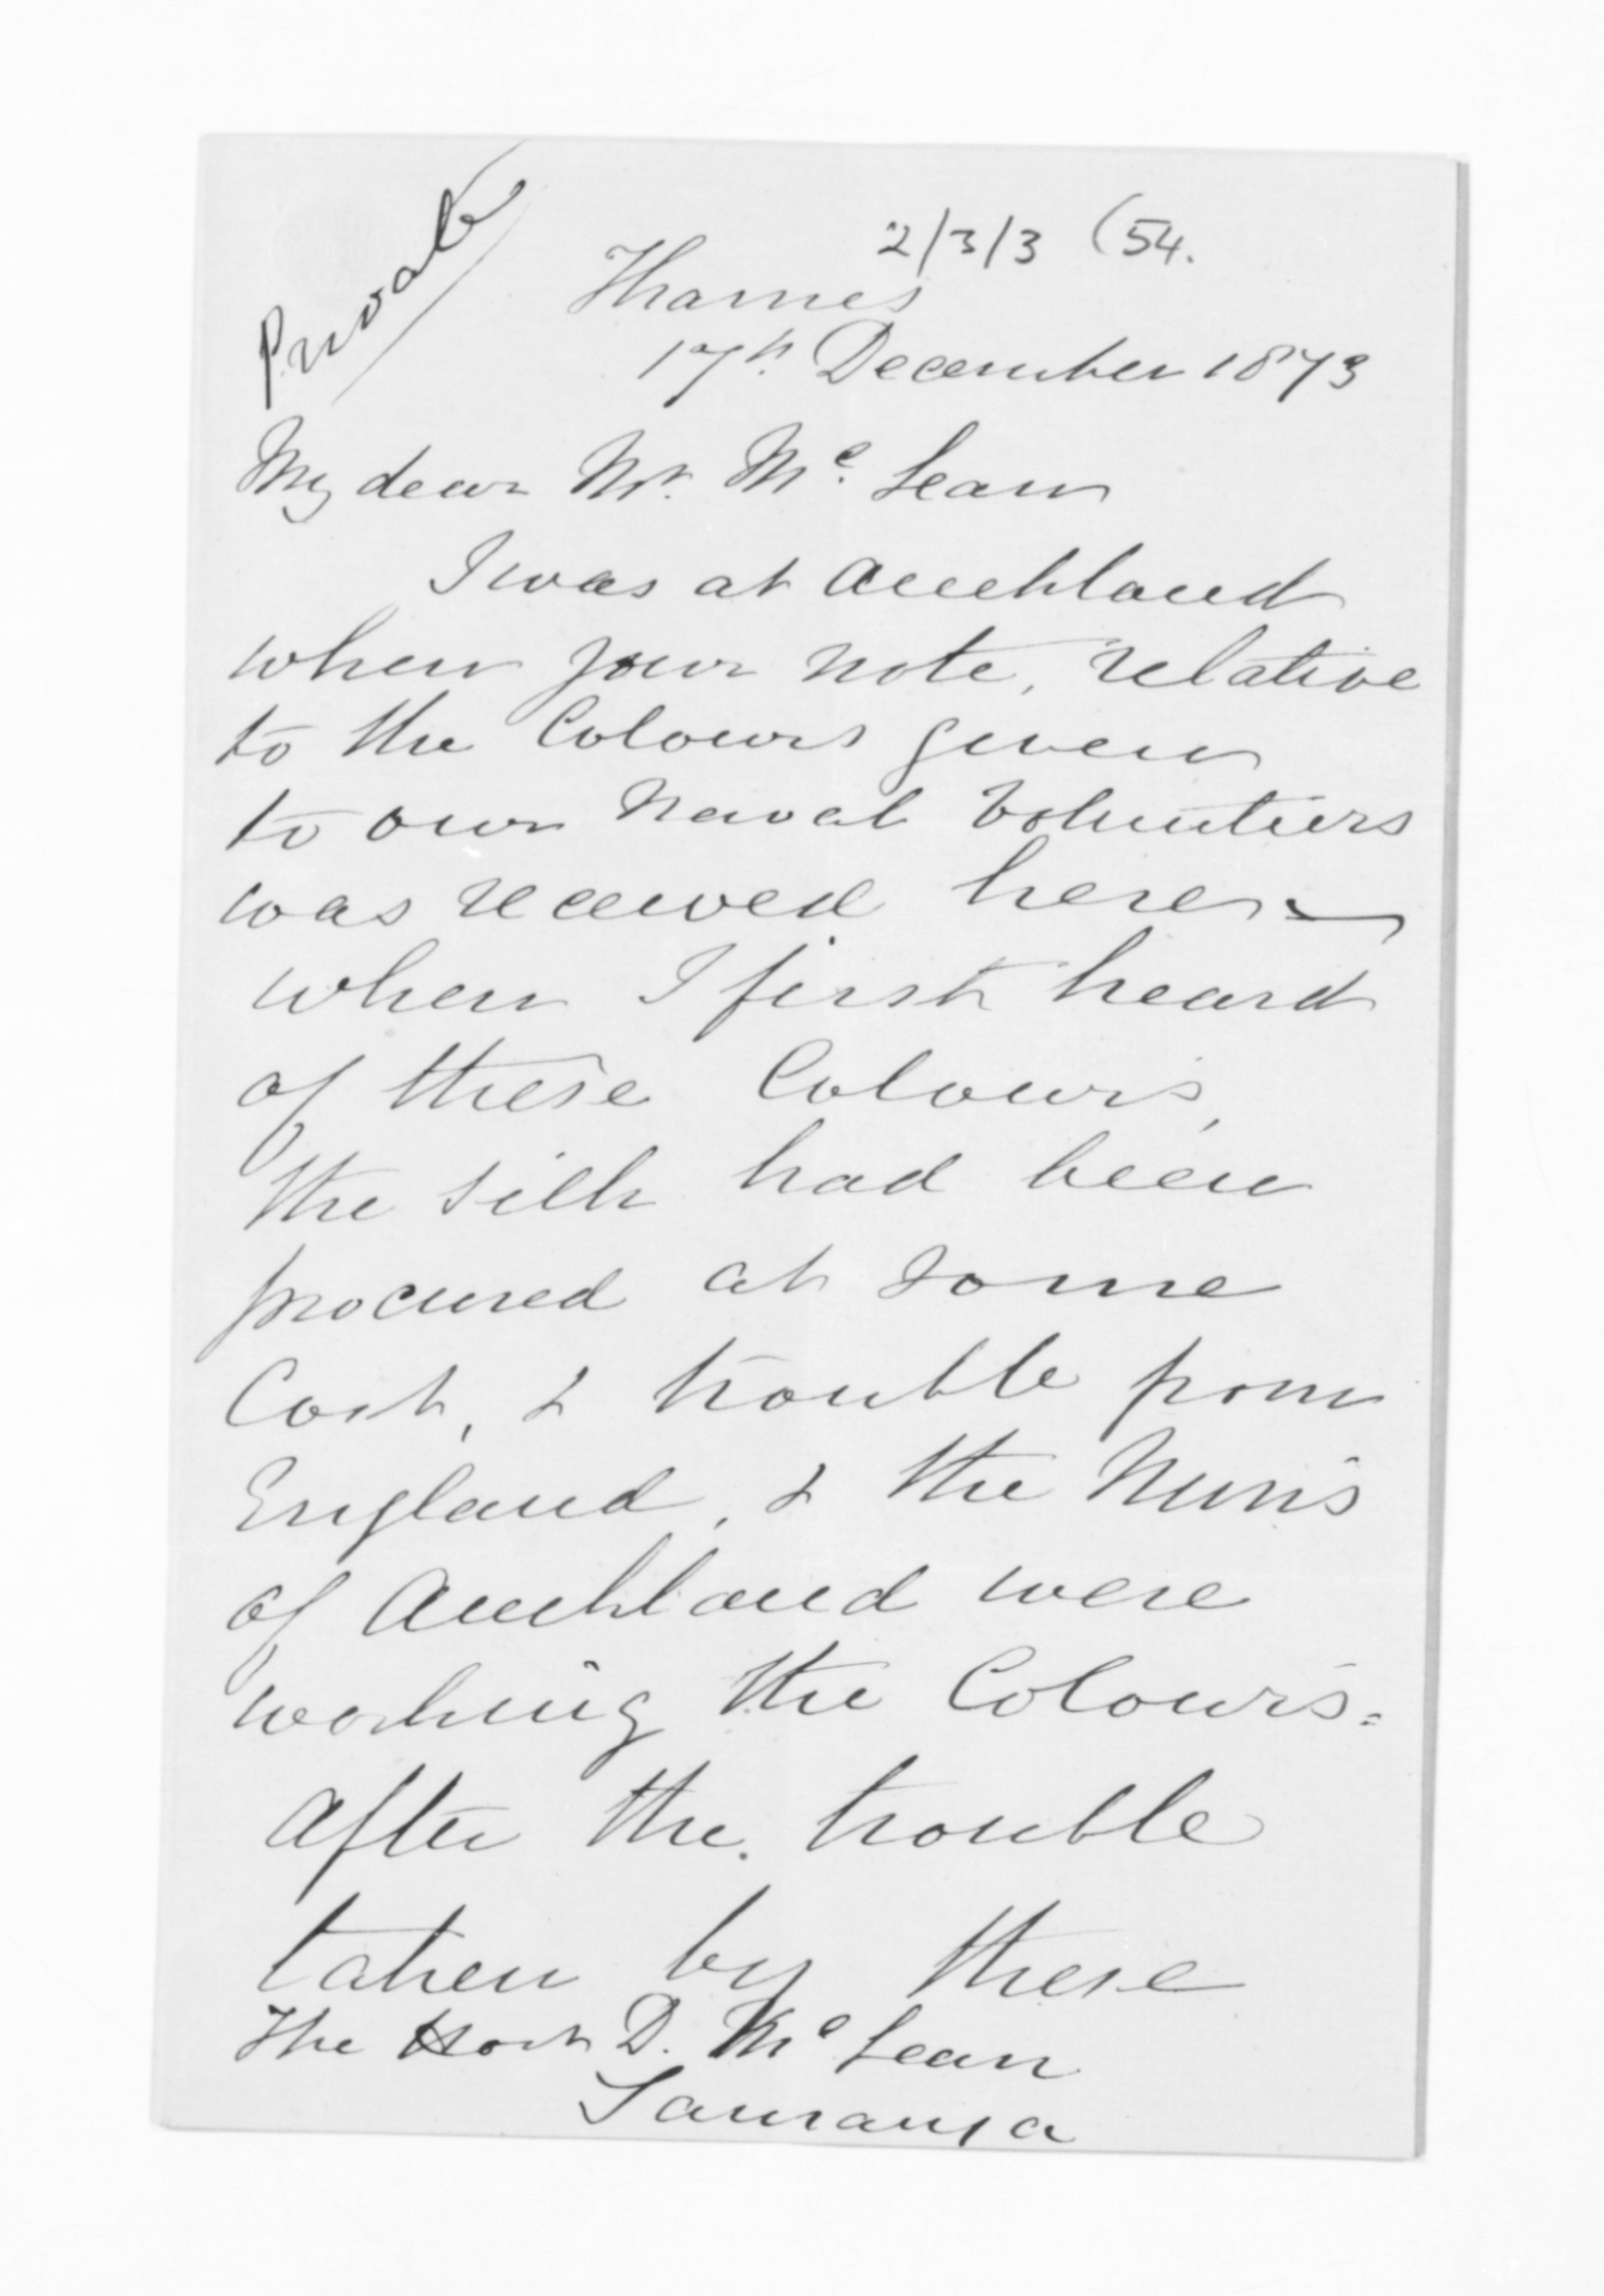 Private
2/3/3 (54.
Thames
17th. December 1873
My dear Mr. Mc. Lean
I was at Auckland
when your note, relative
to the Colours given
to our Naval Volunteers
was received here —
when I first heard
of these Colours,
the silk had been
procured at some
Cost, & trouble from
England, & the Nuns
of Auckland were
working the Colours.
After the trouble
taken by these
The Hon D. Mc Lean
Tauranga